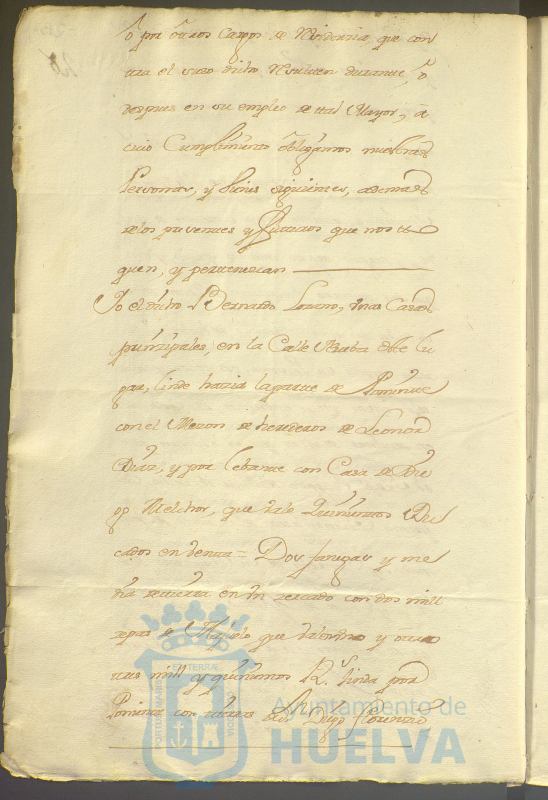 o por otros Cargos de
que con
tra el suso dicho resulten durante, o
despues en su empleo de tal Mayor, a
cuio Cumplimiento obligamos nuestras
Personas, y bienes siguientes, ademas
de los presentes y futuros que nos to
quen, y pertenescan
Yo el dicho Bernardo Lozano, unas Casas
prinzipales, en la Calle
deste lu
gar, linde hazia la parte de Poniente
con el Meson de herederos de Leonor
Diaz, y por lebante con Casa de Die
go Melchor, que vale Quinientos Du
cados en venta = Dos fanegas y me
dia de tierra en un zercado con dos mill
zepas de Majuelo que
y
tres mill y quinientos Rs. linda por
Poniente con
de Diego Florenzio
PORTUS MARIS
ET TERRÆ
CUSTODIA
Ayuntamiento de
HUELVA